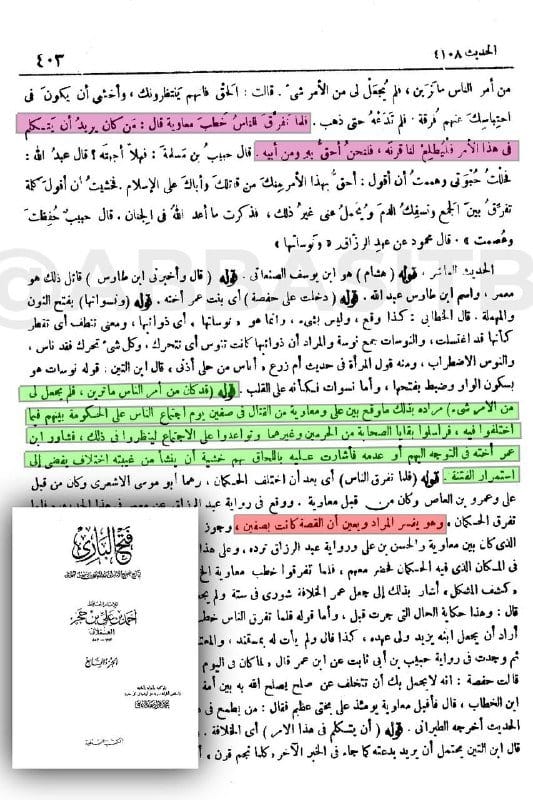 الحديث ٤١٠٨
٤٠٣
من أمر الناس ما تَرَين ، فلم يُجعَلْ لى من الأمر شىء . قالت : الحَقْ فانهم يَنتظِرونك ، وأخشى أن يكونَ فى
احتباسِكَ عنهم فُرقة . فلم تَدَعْهُ حتى ذهب . فلما تفرَّقَ الناسُ خَطبَ معاوية قال : مَن كان يريدُ أن يَتكلم
فى هذا الأمر فليُطلِعْ لنا قرنَه ، فلنحنُ أحقُّ به ومن أبيه . قال حبيبُ بن مَسلمة : فهلا أجبتَه ؟ قال عبدُ الله :
فحلَلْتُ حُبْوَتى وهممتُ أن أقول : أحقُّ بهذا الأمر مِنك مَن قاتلَكَ وأباكَ على الإسلام . فخشيتُ أن أقول كلمة
تفرِّقُ بينَ الجمع وتَسفِكُ الدمَ ويُحمَلُ عنى غيرُ ذلك ، فذكرتُ ما أعد اللهُ فى الجِنان . قال حبيب : حُفِظتَ
وعُصِمت » . قال محمود عن عبدِ الرزاق « ونَوساتها »
الحديث العاشر . قوله ( هشام ) هو ابن يوسف الصنعانى . قوله ( قال وأخبرنى ابن طاوس ) قائل ذلك هو
معمر ، واسم ابن طاوس عبد الله . قوله ( دخلت على حفصة ) أى بنت عمر أخته . قوله ( ونسواتها ) بفتح النون
والمهملة . قال الخطابى : كذا وقع ، وليس بشىء ، وانما هو « نوساتها » أى ذوائبها ، ومعنى تنطف أى تقطر
كأنها قد اغتسلت ، والنوسات جمع نوسة والمراد أن ذوائبها كانت تنوس أى تتحرك ، وكل شىء تحرك فقد ناس ،
والنوس الاضطراب ، ومنه قول المرأة فى حديث أم زرع « أناس من حلى أذنى . قال ابن التين . قوله نوسات هو
بسكون الواو وضبط بفتحها ، وأما نسوات فكأنه على القلب . قوله ( قد كان من أمر الناس ما ترين ، فلم يجعل لى
من الأمر شىء ) مراده بذلك ما وقع بين على ومعاوية من القتال فى صفين يوم اجتماع الناس على الحكومة بينهم فيما
اختلفوا فيه ، فراسلوا بقايا الصحابة من الحرمين وغيرهما وتواعدوا على الاجتماع لينظروا فى ذلك ، فشاور ابن
عمر أخته فى التوجه اليهم أو عدمه فأشارت عليه باللحاق بهم خشية أن ينشأ من غيبته اختلاف يفضى إلى
استمرار الفتنة . قوله ( فلما تفرق الناس ) أى بعد أن اختلف الحكمان ، رهما أبو موسى الأشعرى وكان من قبل
على وعمرو بن العاص وكان من قبل معاوية . ووقع فى رواية عبد الرزاق عن معمر فى هذا الحديث
تفرق الحكمان ، وهو يفسر المراد ويعين أن القصة كانت بصفين ، وجوز
الذى كان بين معاوية والحسن بن على ورواية عبد الرزاق ترده ، وعلى هذا
فى المكان الذى فيه الحكمان فحضر معهم ، فلما تفرقوا خطب معاوية الخ
« كشف المشكل » أشار بذلك إلى جعل عمر الخلافة شورى فى ستة ولم
قال : وهذا حكاية الحال التى جرت قبل ، وأما قوله فلما تفرق الناس
أراد أن يجعل ابنه يزيد ولى عهده ، كذا قال ولم يأت له بمستند ، والمعتمد
ثم وجدت فى رواية حبيب بن أبى ثابت عن ابن عمر قال « لما كان فى اليوم
قالت حفصة : انه لا يجمل بك أن تتخلف عن صلح يصلح الله به بين أمة
ابن الخطاب ، قال فأقبل معاوية يومئذ على بختى عظيم فقال : من يطمع فى
الحديث أخرجه الطبرانى . قوله ( أن يتكلم فى هذا الامر ) أى الخلافة .
قال ابن التين يحتمل أن يريد بدعته كما جاء فى الخبر الآخر « كلما نجم قرن »
فتح البارى
للإمام الحافظ
أحمد بن على بن حجر
العسقلانى
الجزء السابع
المكتبة السلفية